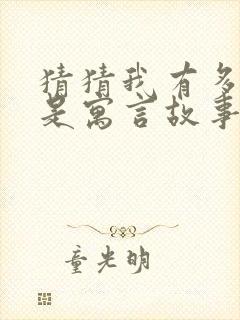 猜猜我有多
是寓言故事
童光明